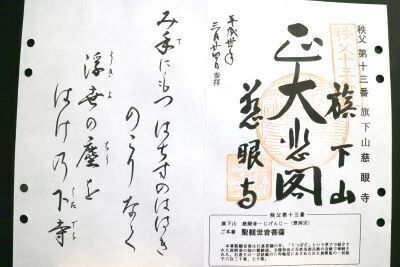 秩父第十三番 旗下山 慈眼寺
旗下山
大悲閣
慈眼寺
秩父十三
平成卅年
三月廿四日 参拝
秩父第十三番
旗下山 慈眼寺―じげんじ― (曹洞宗)
ご本尊 聖観世音菩薩
み手にもつはちすのははき
のこりなく
浮世の塵を
はけの下寺